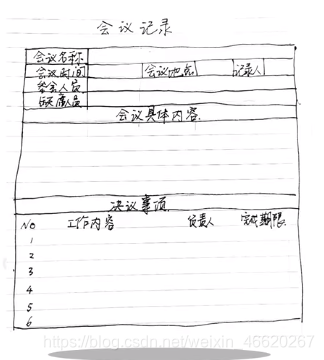 会议记录
会议名称
会议时间 会议地点 记录人
参会人员
缺席人员
会议具体内容
决议事项
NO 工作内容 负责人 完成期限
1
2
3
4
5
6
https://blog.csdn.net/weixin_46620267